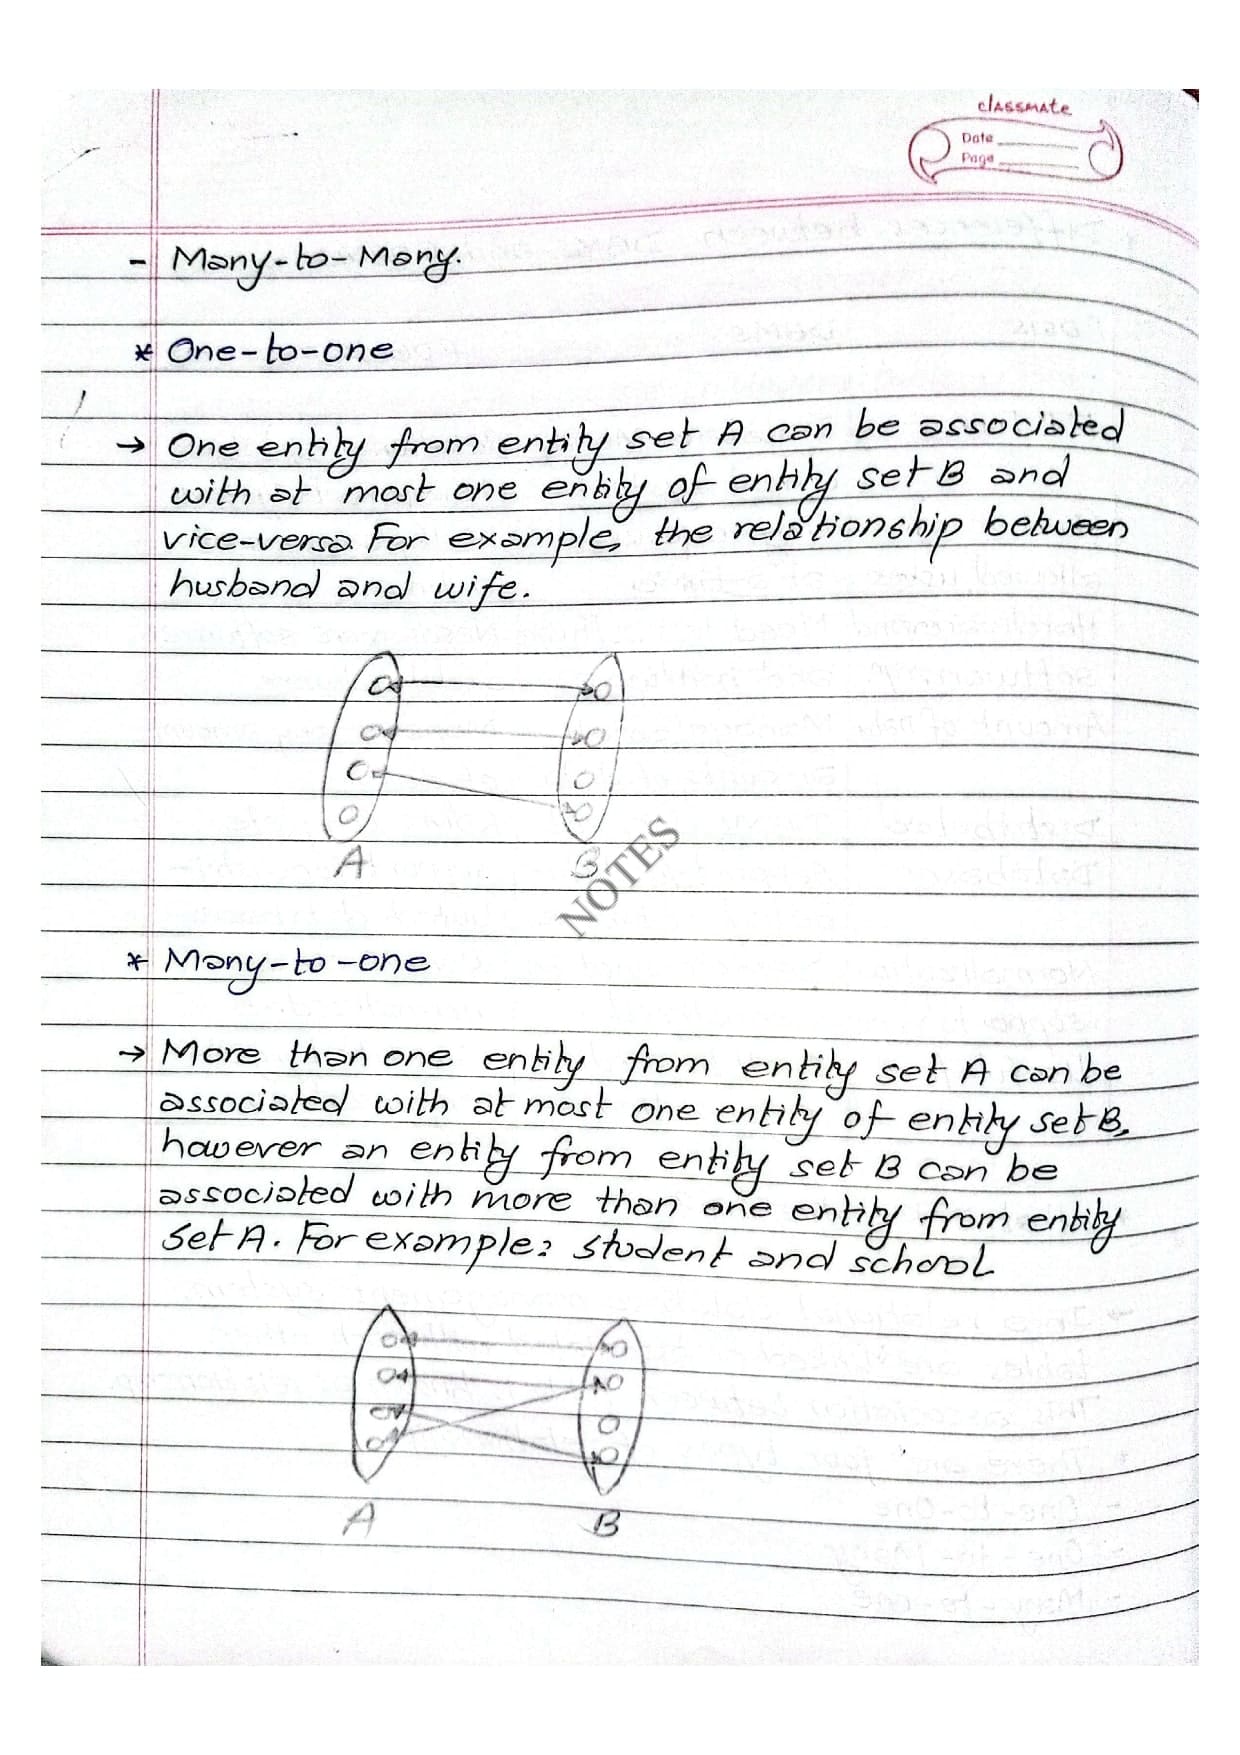 classmate
Date
Page
- Many-to-Many.
* One-to-one
→ One entity from entity set A can be associated
with at most one entity of entity set B and
vice-versa. For example, the relationship between
husband and wife.
A B
NOTES
* Many-to-one
→ More than one entity from entity set A can be
associated with at most one entity of entity set B,
however an entity from entity set B can be
associated with more than one entity from entity
set A. For example: student and school
A B